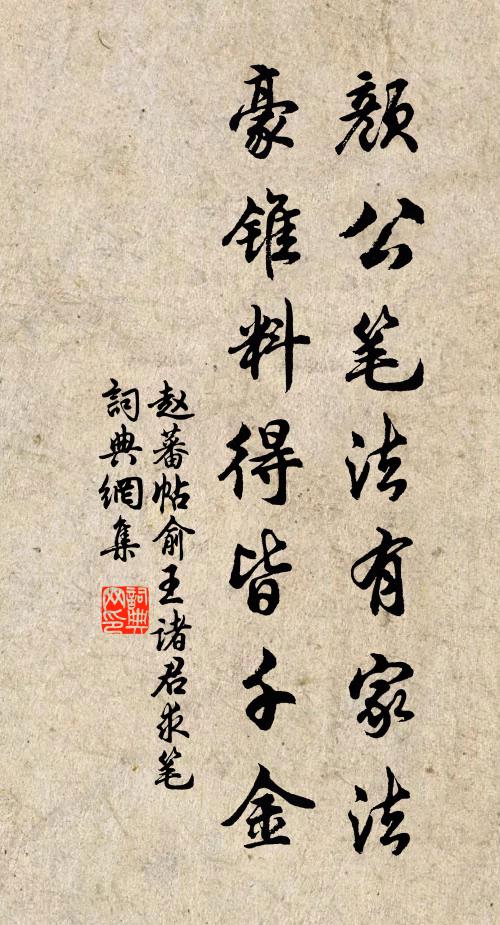 颜公笔法有家法
豪锥料得皆千金
赵蕃帖俞王诸君求笔
詞典網集
詞典网印